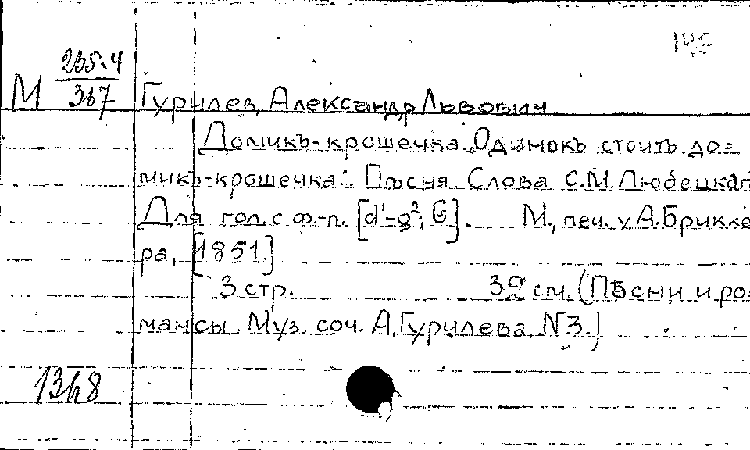 145
М 235.4/367
Гурилев, Александр Львович
Домикъ-крошечка. "Одинокъ стоитъ до=
микъ-крошечка". Пѣсня. Слова С.М. Любецкаго
Для гол. с ф.-п. [d¹-g²; G]. М., печ. у А. Брикке=
ра, [1851.]
3 стр. 32 см. (Пѣсни и ро=
мансы. Муз. соч. А. Гурилева N 3.)
1368